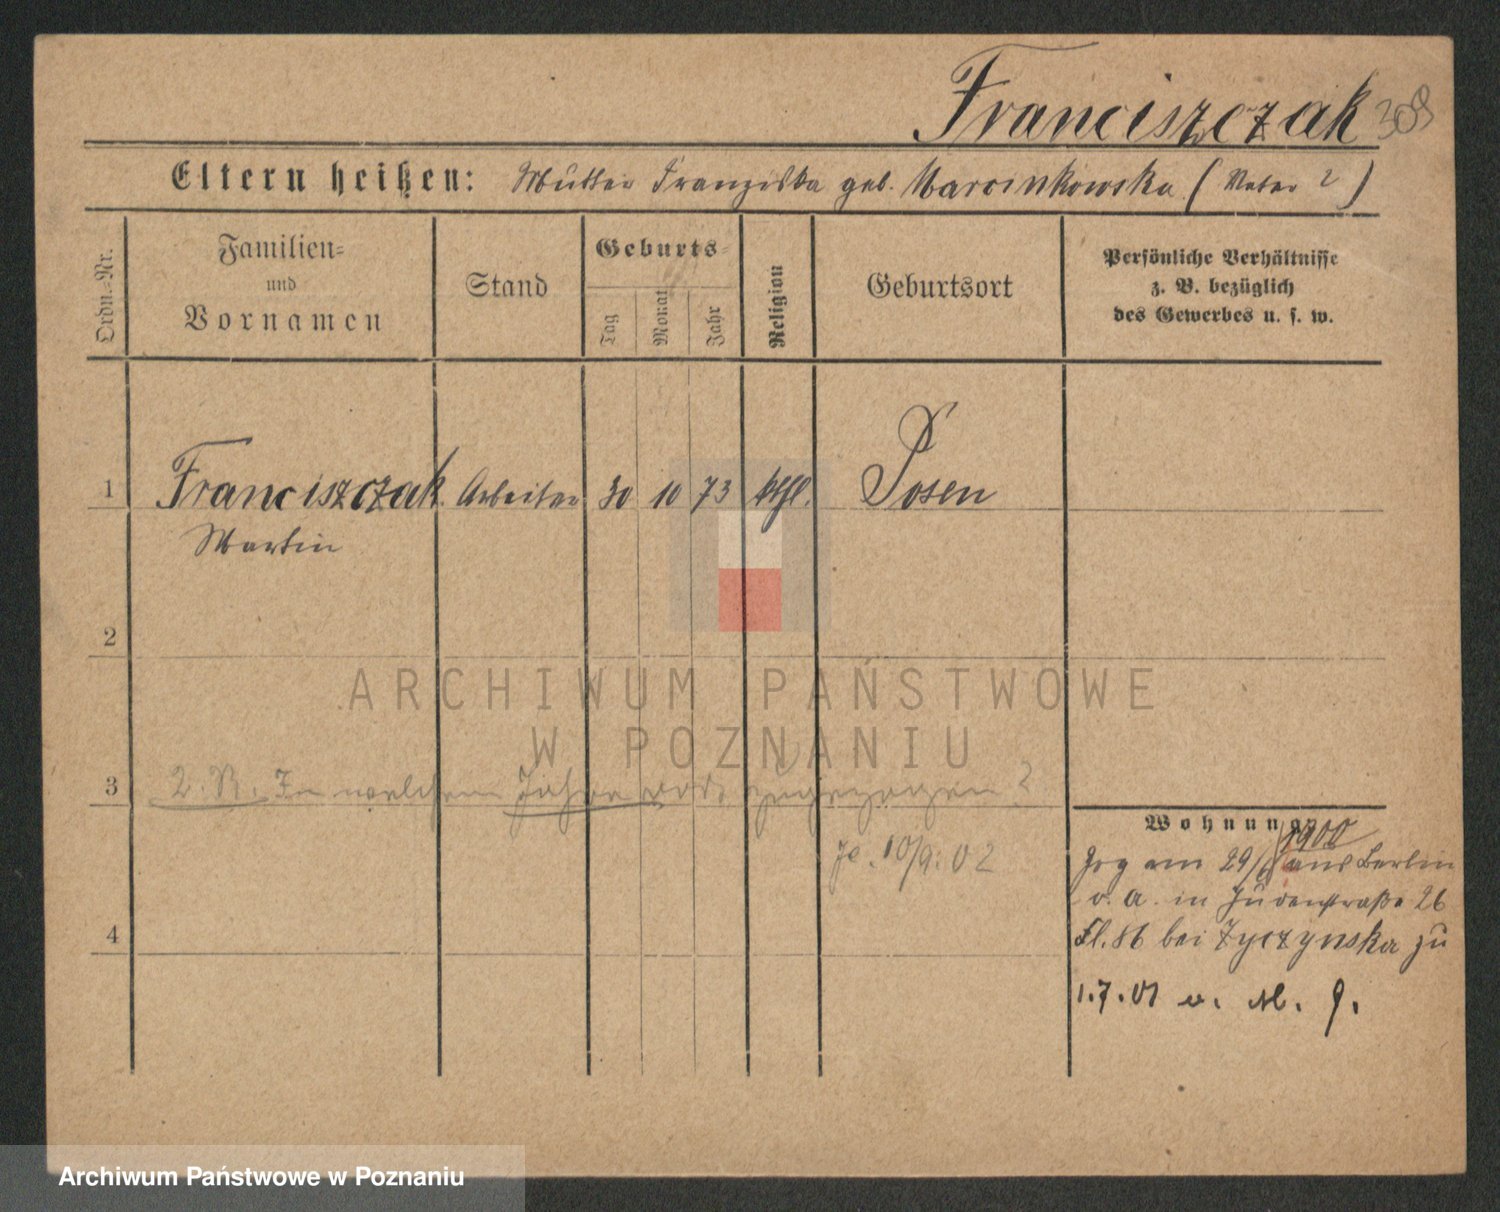 Franciszczak 309
Eltern heißen: Mutter Franziska geb. Marcinkowska (Vater ?)
Ordn.-Nr.
Familien-
und
Vornamen
Stand
Geburts-
Tag
Monat
Jahr
Religion
Geburtsort
Persönliche Verhältnisse
z. B. bezüglich
des Gewerbes u. s. w.
1 Franciszczak Arbeiter 30 10 73 kthl. Posen
Martin
2
ARCHIWUM PAŃSTWOWE
W POZNANIU
3 2. R. In welchem Jahre zugezogen?
10/9. 02
4
Wohnung
1900
Zog am 29/ aus Berlin
v. a. in Judenstraße 26
Fl. 86 bei Zyczynska zu
1. 7. 01 v. M. 9.
Archiwum Państwowe w Poznaniu